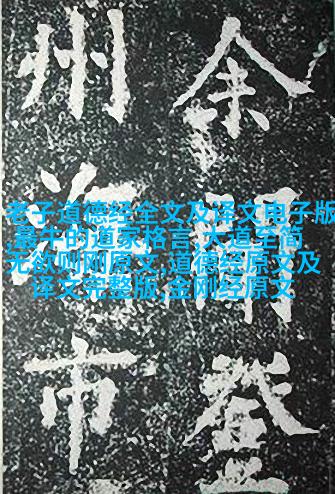 余聞登
州海市
老子道德经全文及译文电子版
,最牛的道家格言,大道至简
无欲则刚原文,道德经原文及
译文完整版,金刚经原文